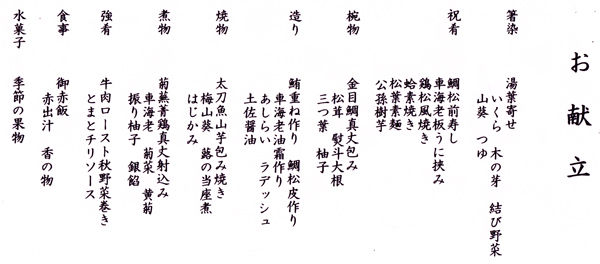 お献立
箸染
湯葉寄せ
いくら 木の芽 結び野菜
山葵 つゆ
祝肴
鯛松前寿し
車海老板うに挟み
鶏松風焼き
蛤素焼き
松葉素麺
公孫樹芋
椀物
金目鯛真丈包み
松茸 熨斗大根
三つ葉 柚子
造り
鮪重ね作り 鯛松皮作り
車海老油霜作り
あしらい ラデッシュ
土佐醤油
焼物
太刀魚山芋包み焼き
梅山葵 蕗の当座煮
はじかみ
煮物
菊蕪菁鶏真丈射込み
車海老 菊菜 黄菊
振り柚子 銀餡
強肴
牛肉ロースト秋野菜巻き
とまとチリソース
食事
御赤飯
赤出汁 香の物
水菓子
季節の果物